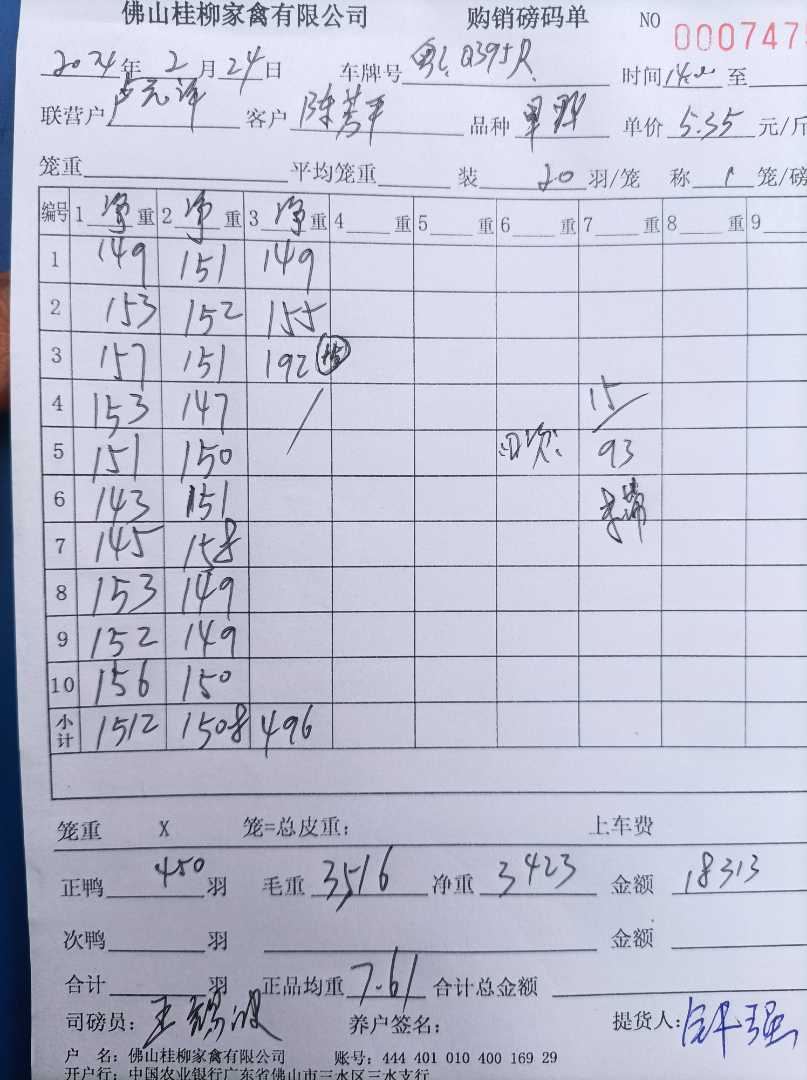 佛山桂柳家禽有限公司 购销磅码单 NO 000747
2024年2月24日 车牌号 粤L Q395R 时间 14:00 至
联营户 客户 陈 平 品种 单价 5.35 元/斤
笼重 平均笼重 装 20 羽/笼 称 1 笼/磅
编号 1 净 重 2 净 重 3 净 重 4 重 5 重 6 重 7 重 8 重 9
1 149 151 149
2 153 152 155
3 157 151 192
4 153 147 / 15
5 151 150 93
6 143 151
7 145 158
8 153 149
9 152 149
10 156 150
小计 1512 1508 496
笼重 X 笼=总皮重: 上车费
正鸭 450 羽 毛重 3516 净重 3423 金额 18313
次鸭 羽 金额
合计 羽 正品均重 7.61 合计总金额
司磅员: 王 波 养户签名: 提货人: 强
户 名: 佛山桂柳家禽有限公司 账号: 444 401 010 400 169 29
开户行: 中国农业银行广东省佛山市三水区三水支行